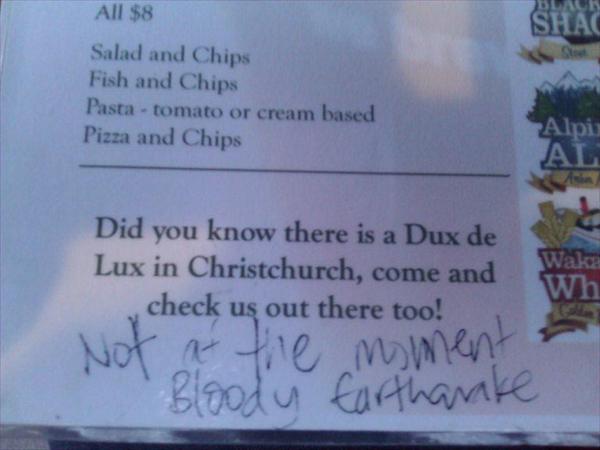 All $8
Salad and Chips
Fish and Chips
Pasta - tomato or cream based
Pizza and Chips
Did you know there is a Dux de
Lux in Christchurch, come and
check us out there too!
Not at the moment
Bloody Earthquake
BLACK
SHAC
Stout
Alpi
AL
Amber
Waka
Wh
Golden